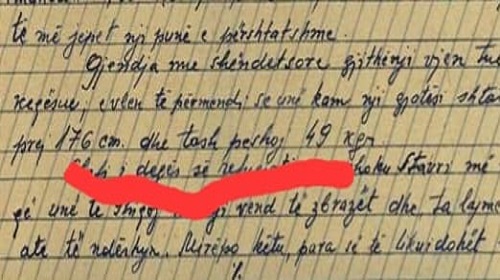 të më jepet nji punë e përshtatshme.
Gjendja me shëndetsore gjithënji vjen tue
keqësue, e vlen të përmendj se unë kam nji gjatësi shtat
prej 176 cm. dhe tash peshoj 49 kgr.
i degës së shoku Stavri më
që unë të shigoj vend të zbrazët dhe ta lajme
ate të ndëshyn. Mirëpo këtu, para së të likuidohët
%